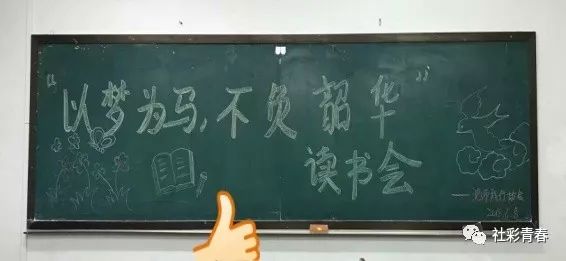 “以梦为马,不负韶华”
读书会
社彩青春